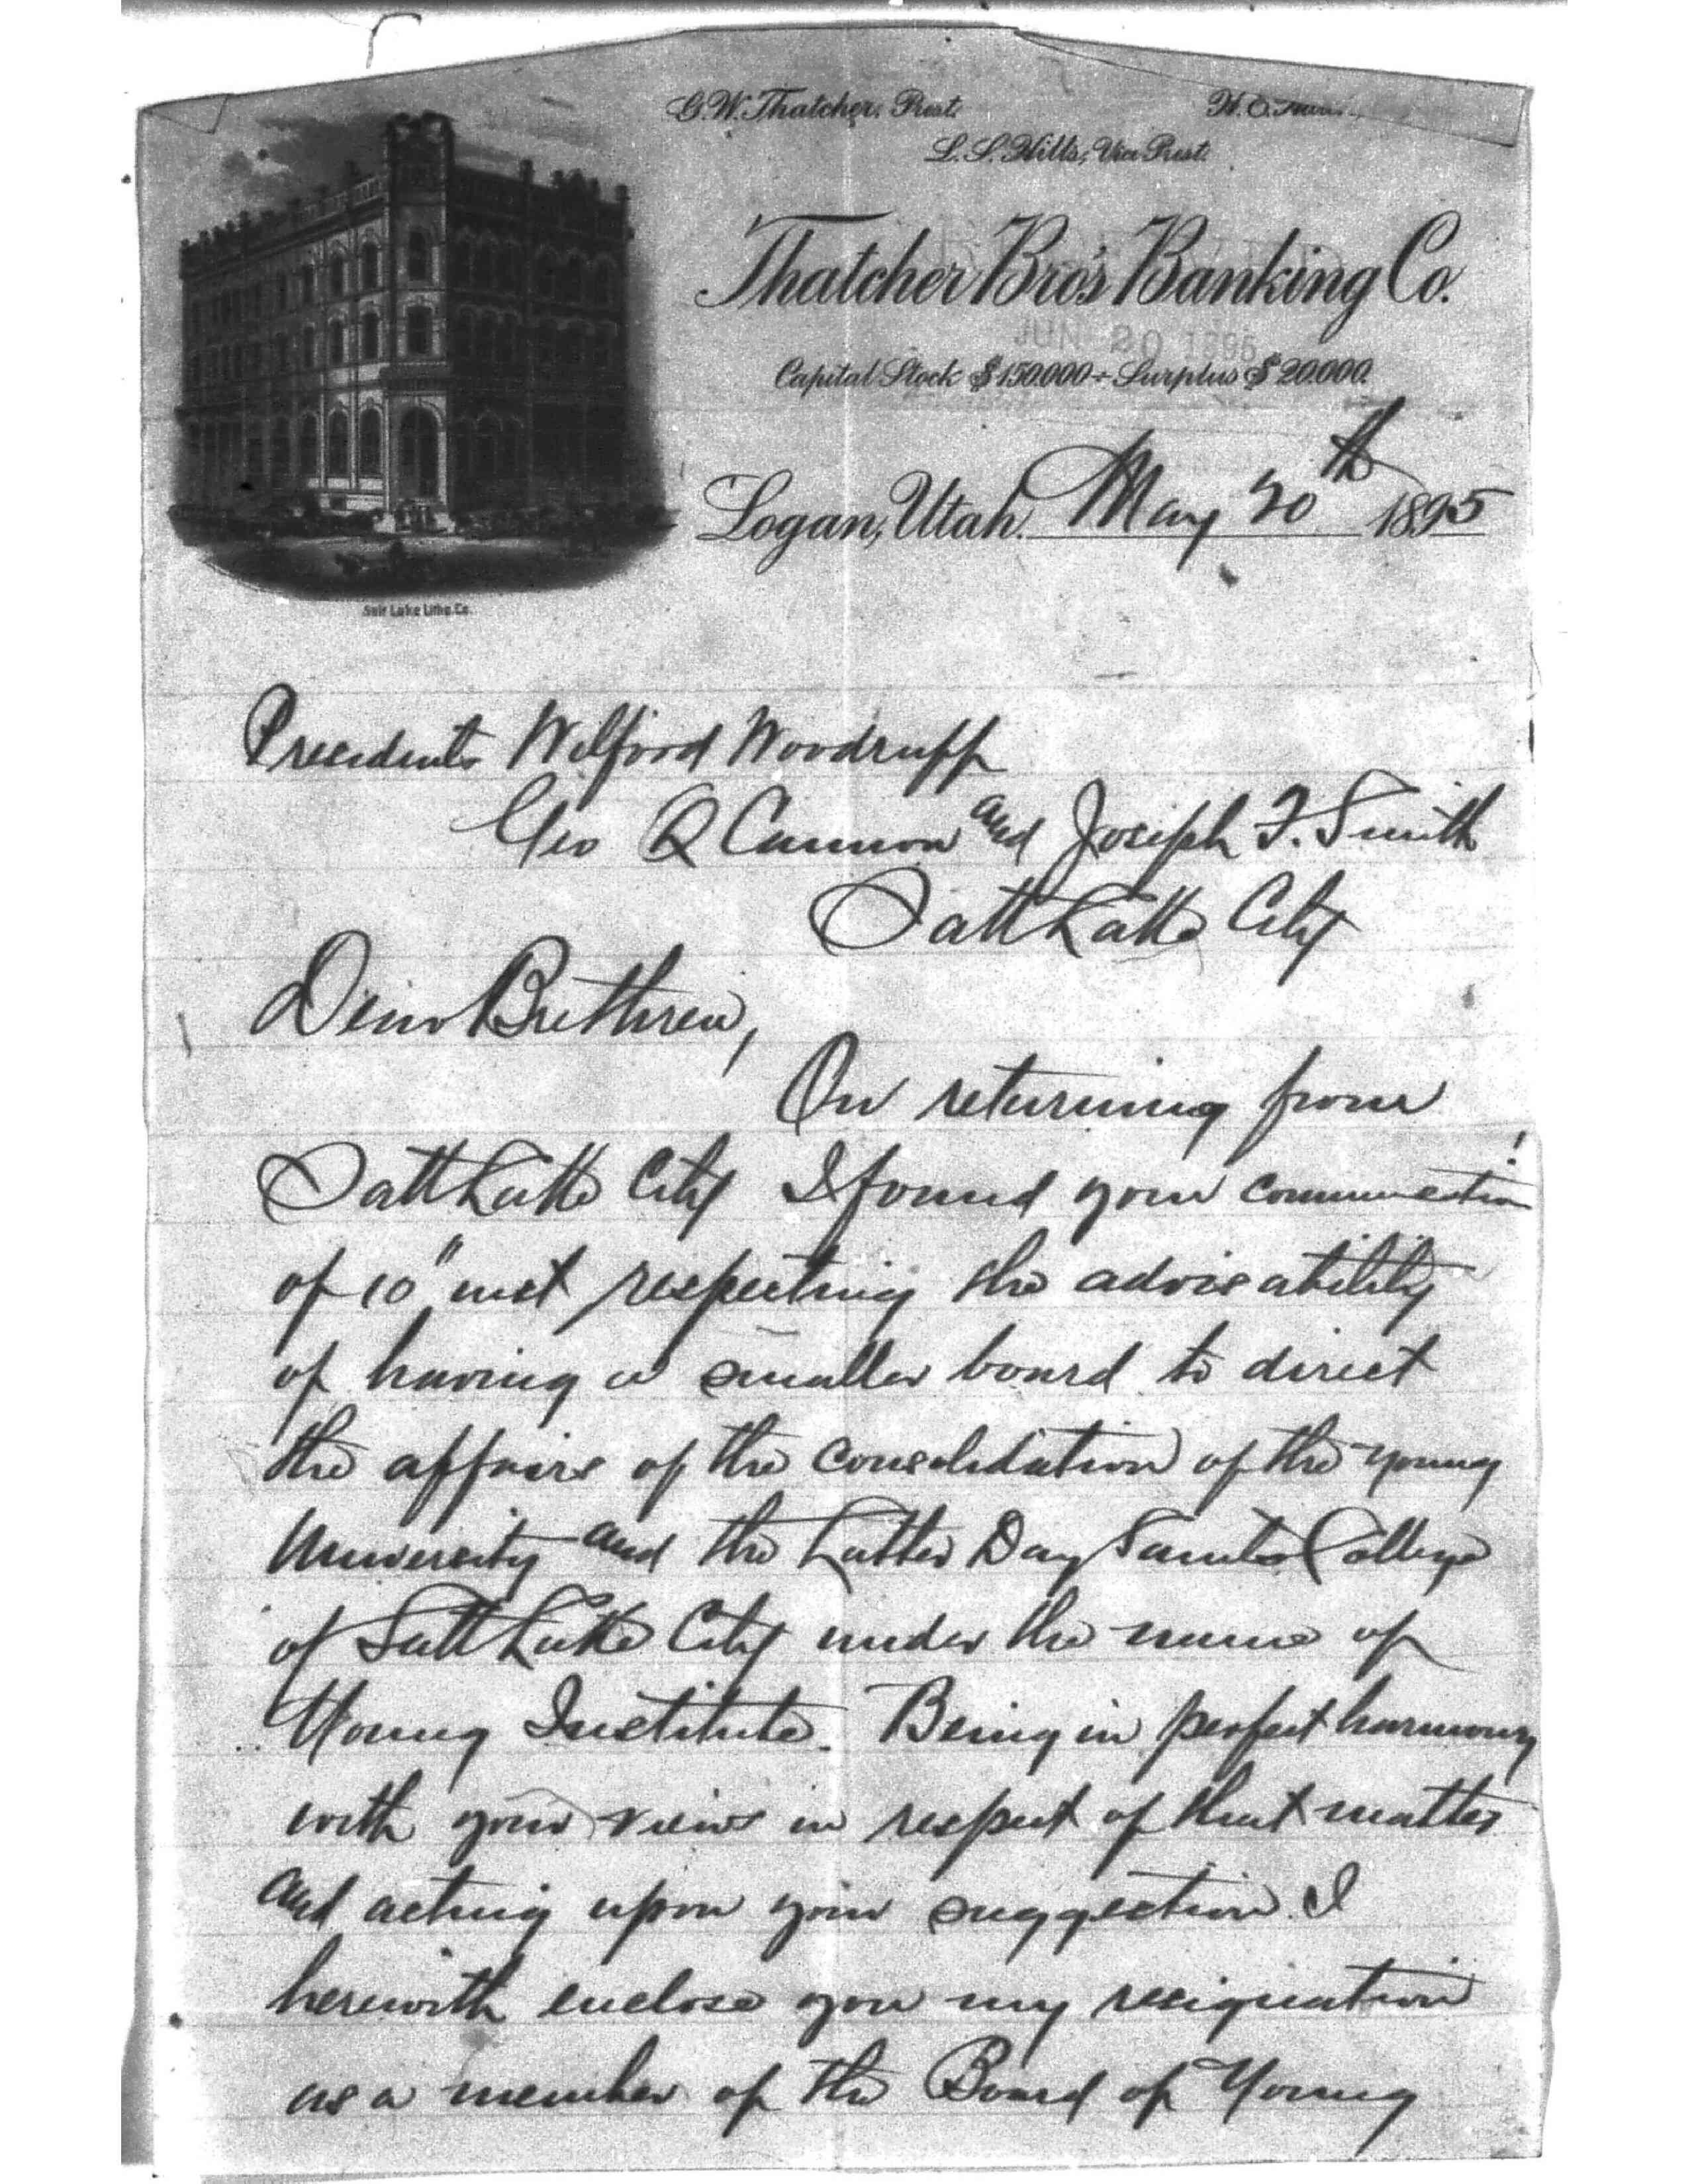 G. W. Thatcher, Prest.
L. S. Hills, Vice Prest.
Thatcher Bro's Banking Co.
JUN 20 1895
Capital Stock $150.000 - Surplus $20.000.
Logan, Utah. May 20th 1895
Salt Lake Litho. Co.
Presidents Wilford Woodruff
Geo Q Cannon and Joseph F. Smith
Salt Lake City
Dear Brethren,
On returning from
Salt Lake City I found your communication
of 10" inst respecting the advisability
of having a smaller board to direct
the affairs of the consolidation of the Young
University and the Latter Day Saints College
of Salt Lake City under the name of
Young Institute. Being in perfect harmony
with your views in respect of that matter
and acting upon your suggestion I
herewith enclose you my resignation
as a member of the Board of Young